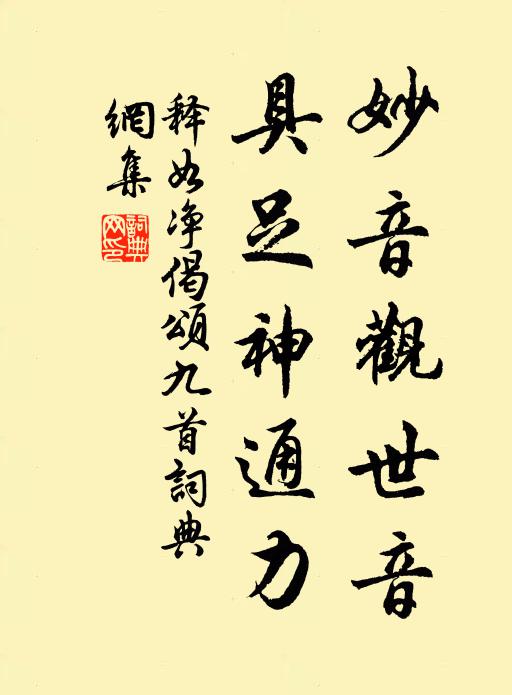 妙音觀世音
具足神通力
释如净偈頌九首詞典
網集
詞典
网印